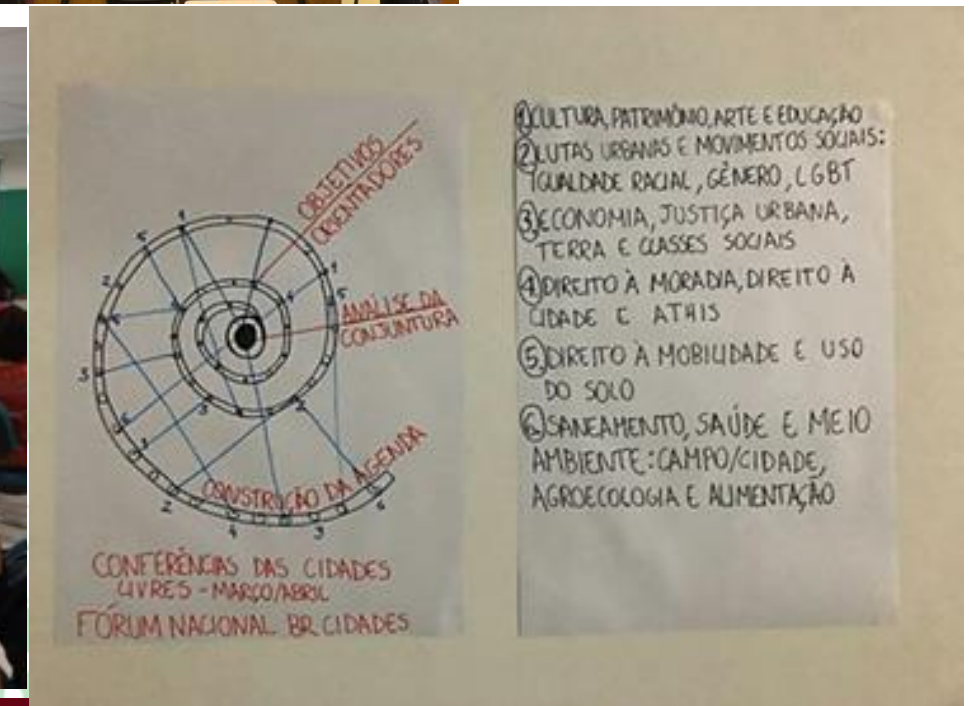 OBJETIVOS
ORIENTADORES
ANÁLISE DA
CONJUNTURA
CONSTRUÇÃO DA AGENDA
CONFERÊNCIAS DAS CIDADES
LIVRES - MARÇO/ABRIL
FÓRUM NACIONAL BR CIDADES
① CULTURA, PATRIMÔNIO, ARTE E EDUCAÇÃO
② LUTAS URBANAS E MOVIMENTOS SOCIAIS:
IGUALDADE RACIAL, GÊNERO, LGBT
③ ECONOMIA, JUSTIÇA URBANA,
TERRA E CLASSES SOCIAIS
④ DIREITO À MORADIA, DIREITO À
CIDADE E ATHIS
⑤ DIREITO À MOBILIDADE E USO
DO SOLO
⑥ SANEAMENTO, SAÚDE E MEIO
AMBIENTE: CAMPO/CIDADE,
AGROECOLOGIA E ALIMENTAÇÃO